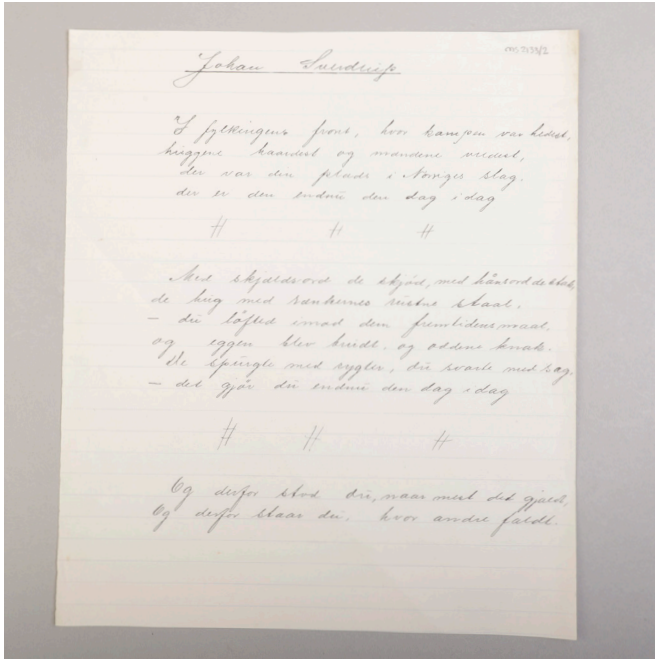 Johan Sverdrup
I fylkingens front, hvor kampen var hedest,
huggene haardest og mændene vredest,
der var den plads i Norges slag.
der er den endnu den dag idag
# # #
Med skjældsord de skjød, med håнsord de stak,
de hug med tankernes rustne staal.
– du løfted imod dem fremtidens maal,
og eggen blev hvidt, og oddene knak.
De spurgte med rygter, du svarte med sag.
– det gjør du endnu den dag idag
# # #
Og derfor stod du, naar mest det gjaldt,
Og derfor staar du, hvor andre faldt.